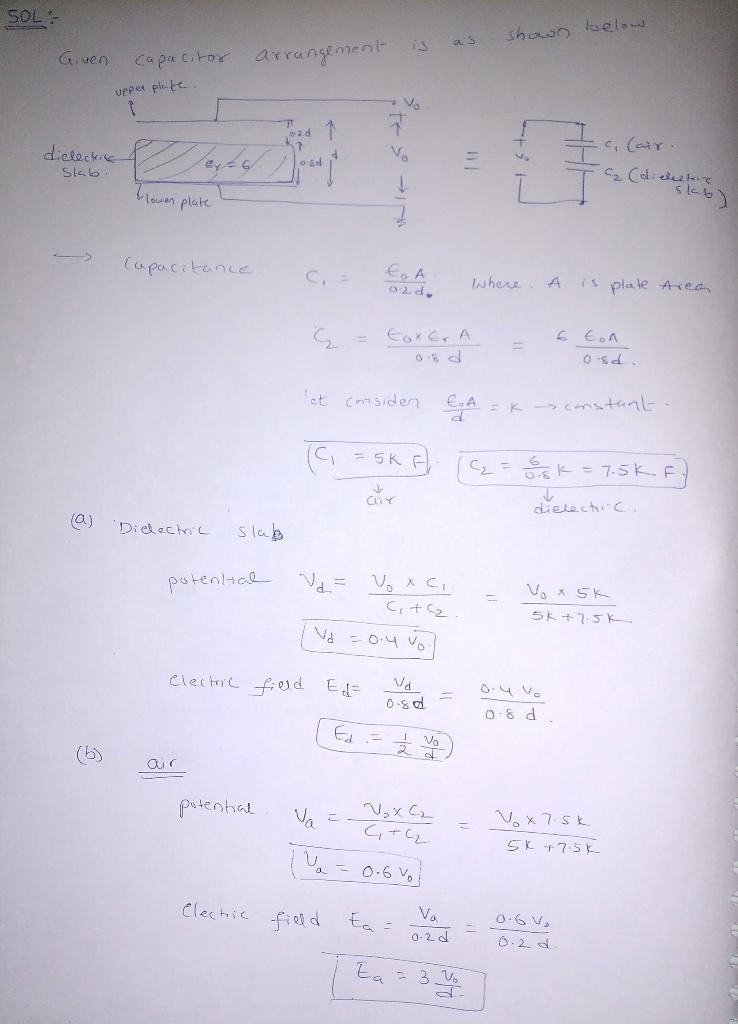 SOL :-
Given capacitor arrangement is as shown below
upper plate
V₀
0.2d
dielectric slab.
εr = 6
0.8d
d
V₀
≡
+ V₀ -
C₁ (air.
C₂ (dielectric slab)
lower plate
→ Capacitance C₁ = ε₀ A / 0.2 d. Where. A is plate Area
C₂ = ε₀ x εr A / 0.8 d = 6 ε₀A / 0.8d.
let consider ε₀A / d = K → constant.
C₁ = 5K F. C₂ = 6 / 0.8 K = 7.5K F.
↓ air
↓ dielectric.
(a) Dielectric slab
potential Vd = V₀ x C₁ / C₁ + C₂ = V₀ x 5K / 5K + 7.5K
Vd = 0.4 V₀.
Electric field Ed = Vd / 0.8d = 0.4 V₀ / 0.8 d.
Ed = 1/2 V₀/d
(b) air
potential. Va = V₀ x C₂ / C₁ + C₂ = V₀ x 7.5K / 5K + 7.5K
Va = 0.6 V₀
Electric field Ea = Va / 0.2d = 0.6 V₀ / 0.2 d.
Ea = 3 V₀/d.